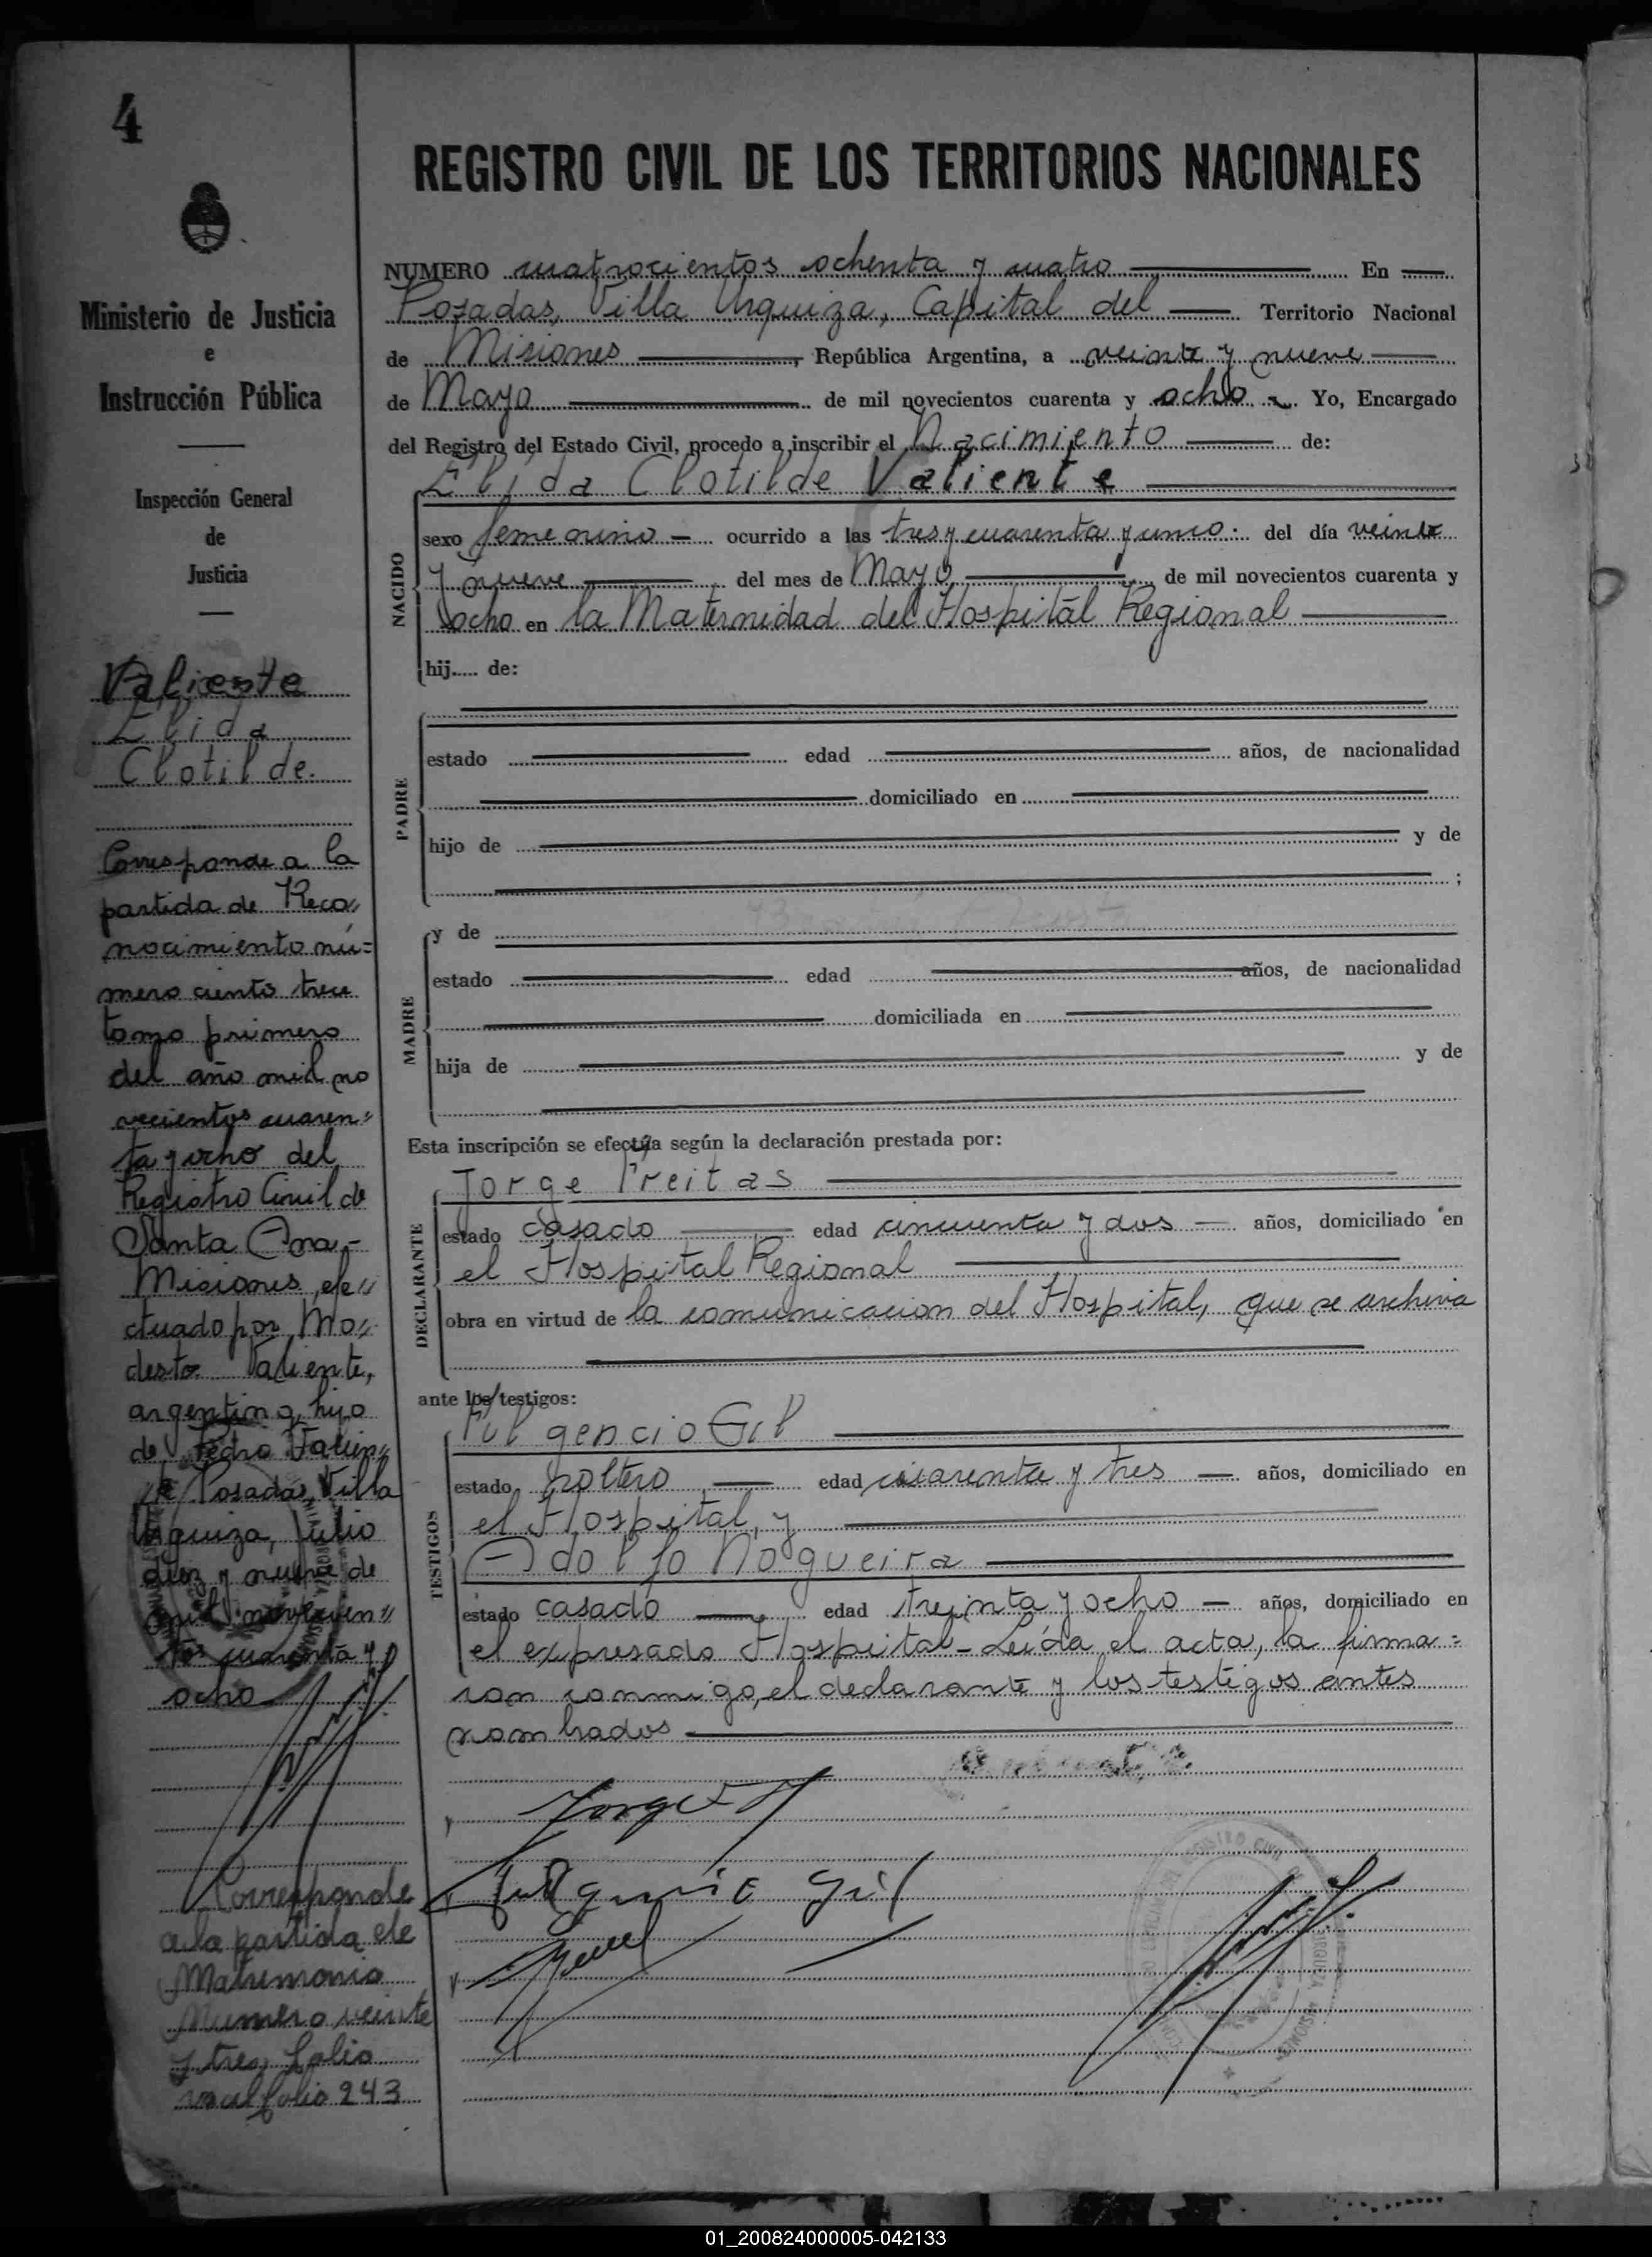 4
REGISTRO CIVIL DE LOS TERRITORIOS NACIONALES
Ministerio de Justicia
e
Instrucción Pública
Inspección General
de
Justicia
Valiente
Elida
Clotilde.
Corresponde a la
partida de Reco,,
nocimiento nú=
mero ciento trece
tomo primero
del año mil no
vecientos cuaren"
ta y ocho del
Registro Civil de
Santa Ana,-
Misiones, efe"
ctuado por Mo,,
desto Valiente,
argentino, hijo
de Pedro Valien"
te Posadas, Villa
Urquiza, Julio
diez y nueve de
mil novecien"
tos cuarenta y
ocho
Corresponde
a la partida de
Matrimonio
Numero veinte
y tres, folio
folio 243
NUMERO cuatrocientos ochenta y cuatro En
Posadas, Villa Urquiza, Capital del Territorio Nacional
de Misiones, República Argentina, a veinte y nueve
de Mayo de mil novecientos cuarenta y ocho. Yo, Encargado
del Registro del Estado Civil, procedo a inscribir el Nacimiento de:
Elida Clotilde Valiente
NACIDO
sexo femenino ocurrido a las tres y cuarenta y del día veinte
y nueve del mes de Mayo, de mil novecientos cuarenta y
ocho en la Maternidad del Hospital Regional
hij..... de:
PADRE
estado edad años, de nacionalidad
domiciliado en
hijo de y de
;
MADRE
y de
estado edad años, de nacionalidad
domiciliada en
hija de y de
Esta inscripción se efectúa según la declaración prestada por:
DECLARANTE
Jorge Freitas
estado casado edad cincuenta y dos años, domiciliado en
el Hospital Regional
obra en virtud de la comunicacion del Hospital, que se archiva
ante los testigos:
TESTIGOS
Fulgencio Gil
estado soltero edad cuarenta y tres años, domiciliado en
el Hospital, y
Adolfo Nogueira
estado casado edad treinta y ocho años, domiciliado en
el expresado Hospital - Leída el acta, la firma=
ron conmigo, el declarante y los testigos antes
nombrados
Jorge
Fulgencio Gil
01_200824000005-042133